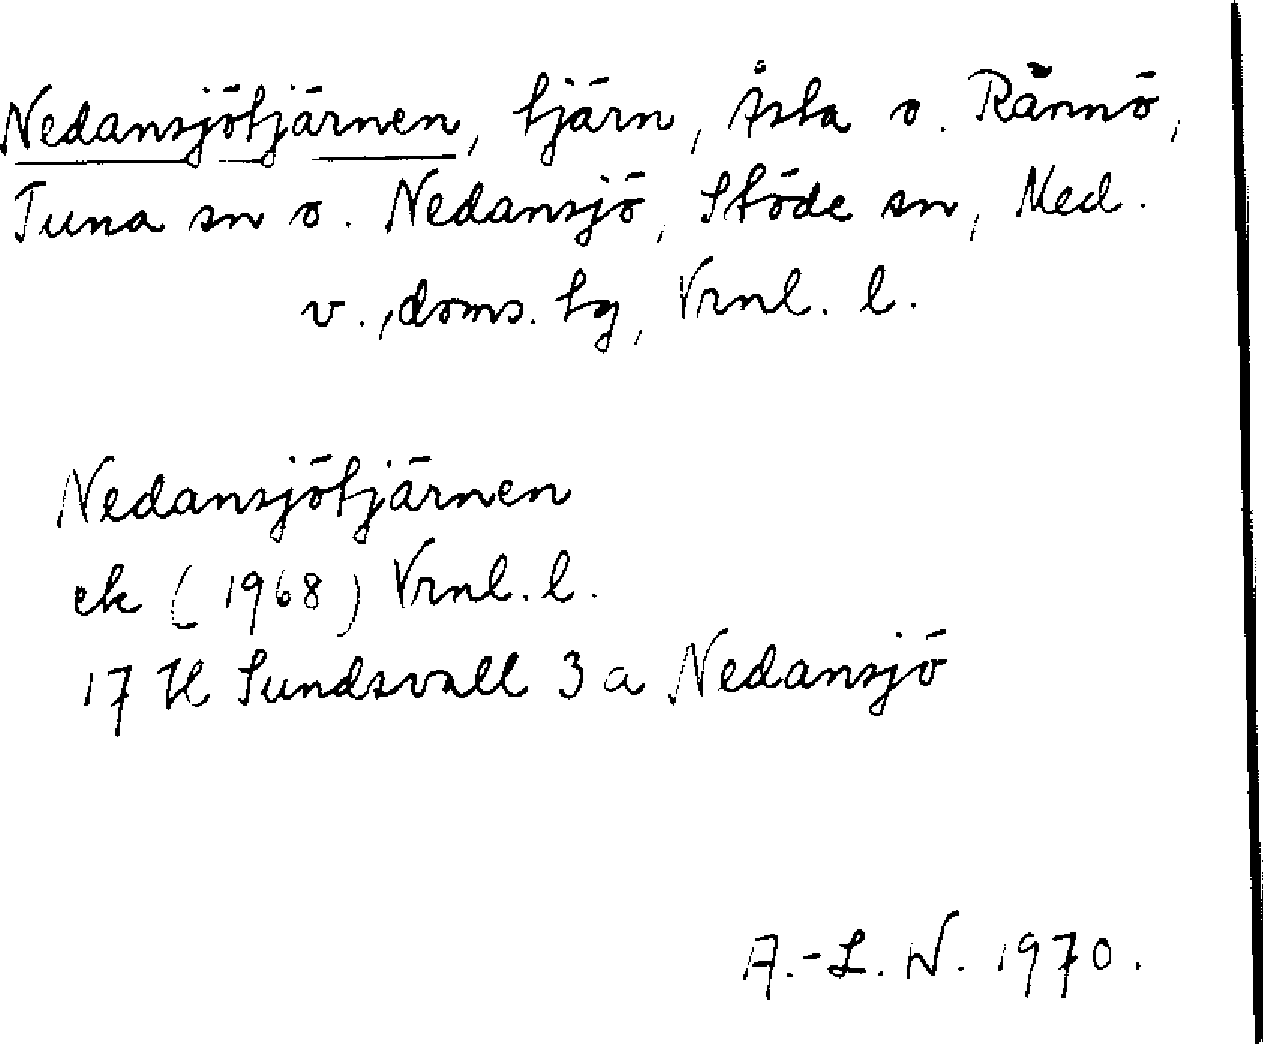 Nedansjötjärnen, tjärn, Åsta o. Rännö,
Tuna sn o. Nedansjö, Stöde sn, Med.
v., doms. tg, Vrnl. l.
Nedansjötjärnen
ek (1968) Vrnl. l.
17 H Sundsvall 3 a Nedansjö
A.-L. N. 1970.